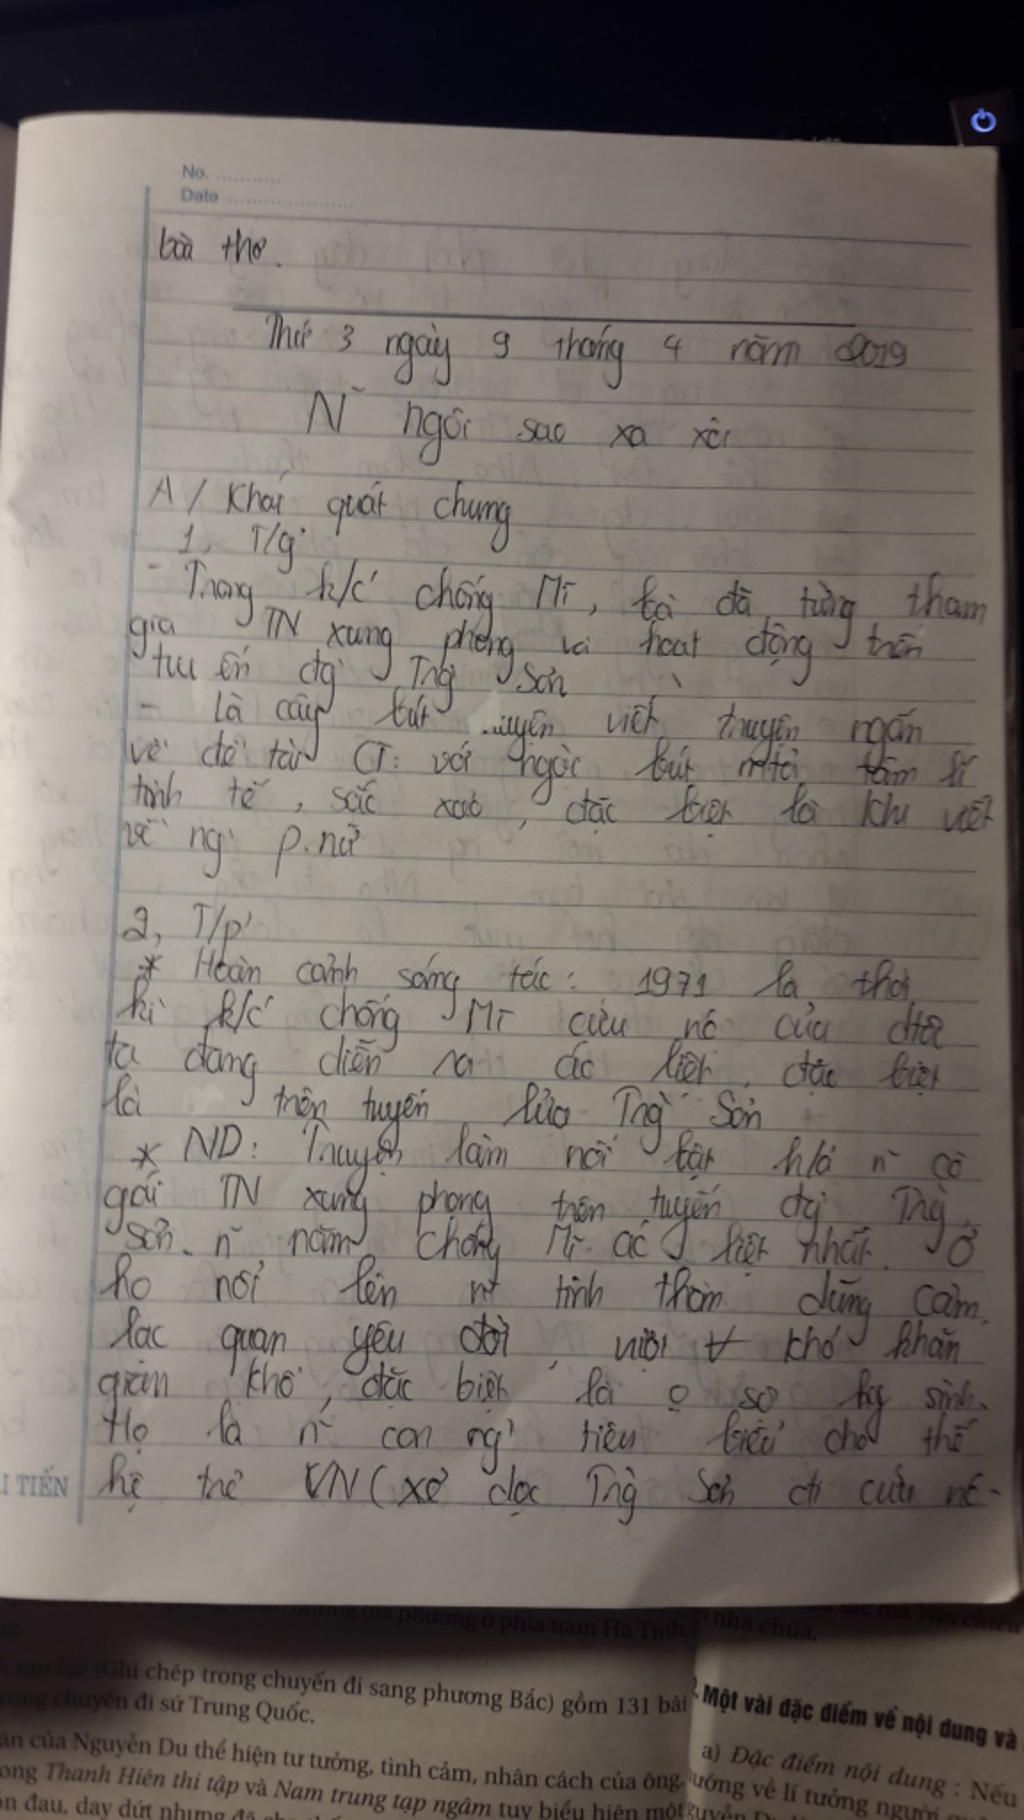 No.
Date
bài thơ.
Thứ 3 ngày 9 tháng 4 năm 2019
N~ ngôi sao xa xôi
A / Khái quát chung
1, T/g'
- Trong k/c' chống Mĩ, bà đã từng tham
gia TN xung phong và hoạt động trên
tuyến đg' Trg Sơn
- Là cây bút chuyên viết truyện ngắn
về đề tài CT: với ngòi bút m.tả tâm lí
tinh tế, sắc xảo, đặc biệt là khi viết
về ng' p.nữ
2, T/p'
* Hoàn cảnh sáng tác: 1971 là thời
kì k/c' chống Mĩ cứu nc của dtộc
ta đang diễn ra ác liệt, đặc biệt
là trên tuyến lửa Trg` Sơn
* ND: Truyện làm nổi bật h/á n~ cô
gái TN xung phong trên tuyến đg' Trg`
Sơn n~ năm chống Mĩ ác liệt nhất. Ở
họ nổi lên tinh thần dũng cảm,
lạc quan yêu đời, vượt ∀ khó khăn
gian khổ, đặc biệt là sợ hy sinh.
Họ là n~ con ng' tiêu biểu cho thế
hệ trẻ VN (xẻ dọc Trg` Sơn đi cứu nc-
I TIẾN
phương ở phía nam Hà Tĩnh.
nhà chùa.
(Ghi chép trong chuyến đi sang phương Bắc) gồm 131 bài
chuyến đi sứ Trung Quốc.
của Nguyễn Du thể hiện tư tưởng, tình cảm, nhân cách của ông.
Thanh Hiên thi tập và Nam trung tạp ngâm tuy biểu hiện một
đau, day dứt nhưng đã
Một vài đặc điểm về nội dung và
a) Đặc điểm nội dung : Nếu
hướng về lí tưởng người